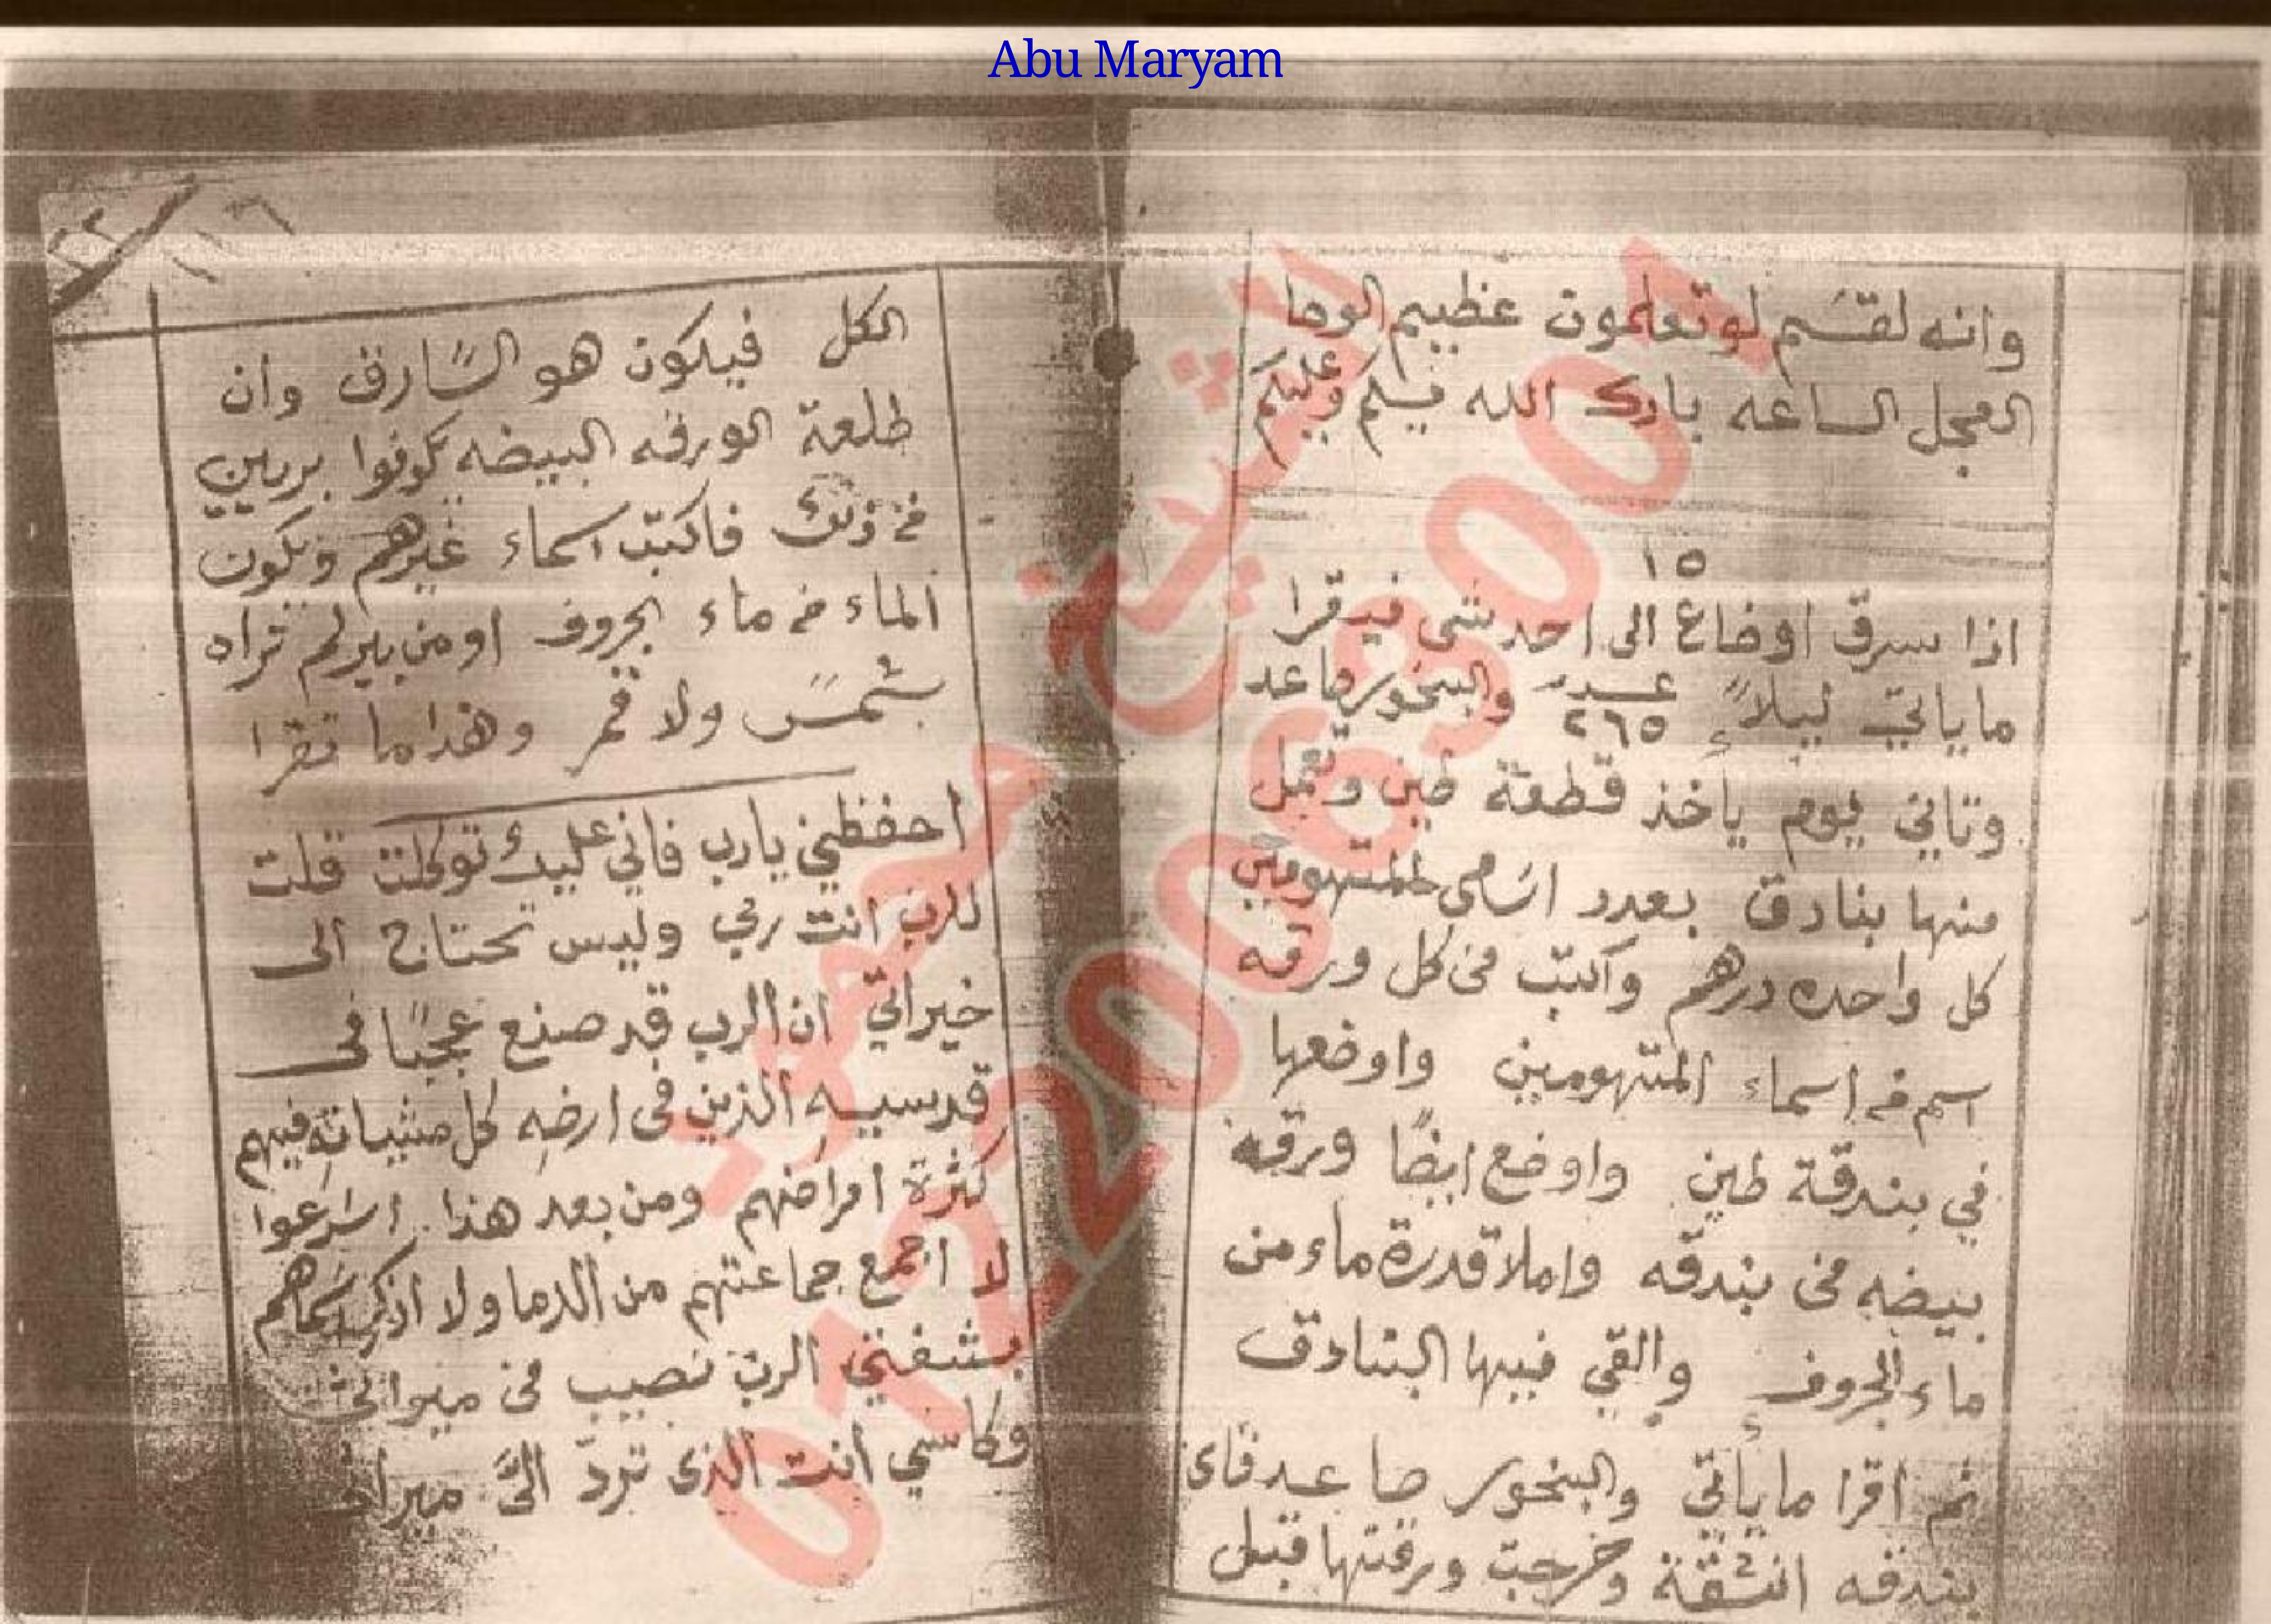 Abu Maryam
وانه لقسم لو تعلمون عظييم الوحا
العجل الساعه بارك الله فيكم وعليكم
١٥
اذا سرق اوضاع الى احد شى فيقرا
ما ياتي ليلاً عدد ٢٦٥ والبخور صاعد
وتاني يوم يأخذ قطعة طين وتعمل
منها بنادق بعدد اسامى المتهومين
كل واحده درهم واكتب فى كل ورقه
اسم من اسماء المتهومين واوضعها
في بندقة طين واوضع ايضًا ورقه
بيضه فى بندقه واملا قدرة ماء من
ماء الجروف والقي فيها البنادق
ثم اقرا ما يأتي والبخور صاعد فاى
بندقه انشقة وخرجت ورقتها قبل
الكل فيكون هو السارق وان
طلعة الورقه البيضه يكونوا بريين
من ذلك فاكتب اسماء غيرهم ويكون
الماء من ماء الجروف او من بير لم تراه
شمس ولا قمر وهذا ما تقرا
احفظني يارب فاني عليك توكلت قلت
للرب انت ربي وليس تحتاج الى
خيراتي ان الرب قد صنع عجبًا فى
قدسيه الذين فى ارضه كل مشياته فيهم
كثرة امراضهم ومن بعد هذا اسرعوا
لا اجمع جماعتهم من الدما ولا اذكر اسماهم
بشفتي الرب نصيب فى ميراثي
وكاسي انت الذى تردّ الىَّ ميراثي
شيخ محمود
01220063001